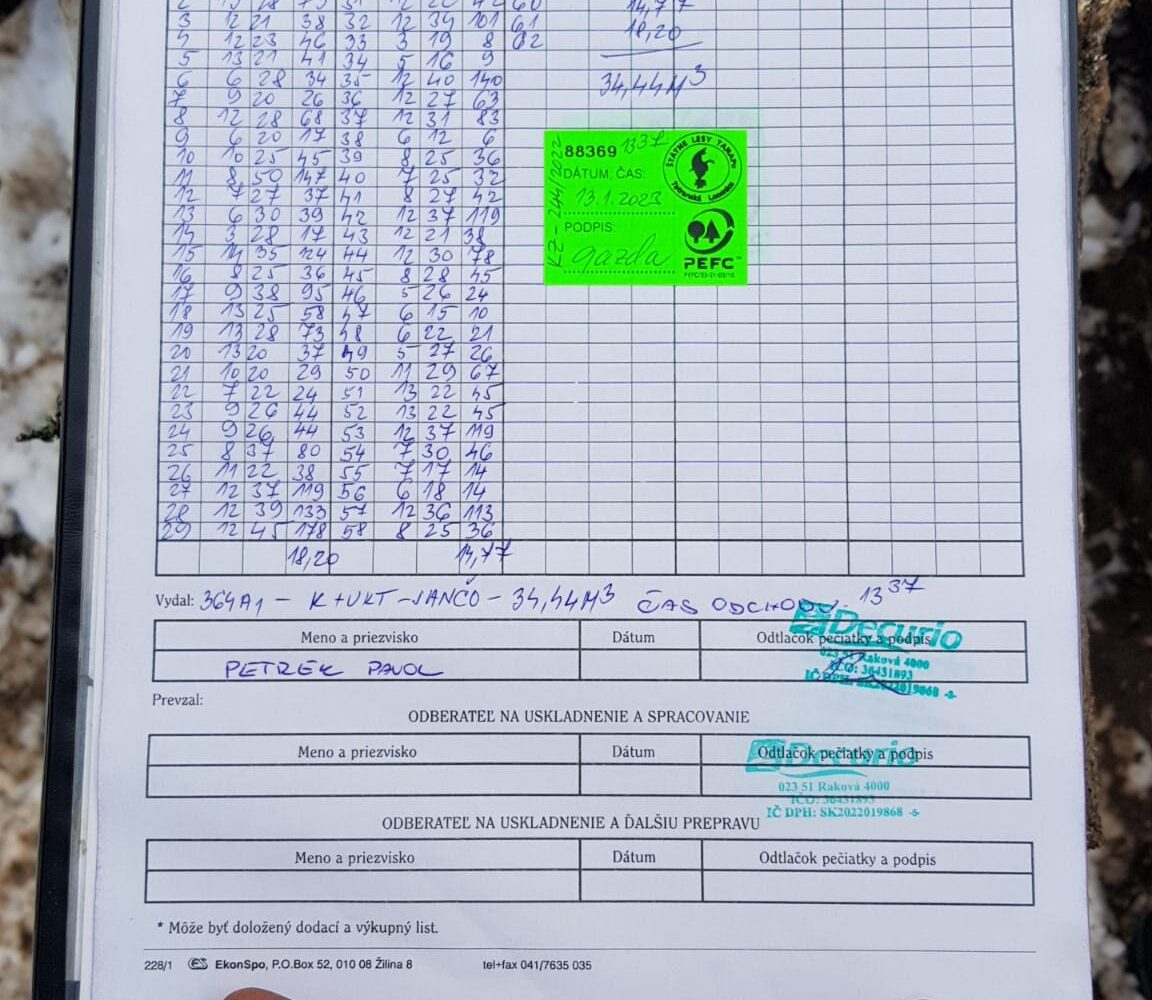 3 12 21 38 32 12 34 101 61 18,20
4 12 23 46 33 3 19 8 62
5 13 21 41 34 5 16 9
6 6 28 34 35 12 40 140 34,44M3
7 9 20 26 36 12 27 63
8 12 28 68 37 12 31 83
9 6 20 17 38 6 12 6
10 10 25 45 39 8 25 36
11 8 50 147 40 7 25 32
12 7 27 37 41 8 27 42
13 6 30 39 42 12 37 119
14 3 28 17 43 12 21 38
15 14 35 124 44 12 30 78
16 8 25 36 45 8 28 45
17 9 38 95 46 5 26 24
18 13 25 58 47 6 15 10
19 13 28 73 48 6 22 21
20 13 20 37 49 5 27 26
21 10 20 29 50 11 29 67
22 7 22 24 51 13 22 45
23 9 26 44 52 13 22 45
24 9 26 44 53 12 37 119
25 8 37 80 54 7 30 46
26 11 22 38 55 7 17 14
27 12 37 119 56 6 18 14
28 12 39 133 57 12 36 113
29 12 45 178 58 8 25 36
18,20 14,77
88369 1337
DÁTUM, ČAS:
13.1.2023
PODPIS:
gazda
KZ - 244/2022
ŠTÁTNE LESY TANAPU
Tatranská Lomnica
PEFC
Vydal: 364A1 - K+UKT-JANČO - 34,44M3 ČAS ODCHODU. 1337
Meno a priezvisko Dátum Odtlačok pečiatky a podpis
PETREK PAVOL
Decurio
023 51 Raková 4000
IČO: 36431893
IČ DPH: SK2022019868 -5-
Prevzal:
ODBERATEĽ NA USKLADNENIE A SPRACOVANIE
Meno a priezvisko Dátum Odtlačok pečiatky a podpis
Decurio
023 51 Raková 4000
IČO: 36431893
IČ DPH: SK2022019868 -5-
ODBERATEĽ NA USKLADNENIE A ĎALŠIU PREPRAVU
Meno a priezvisko Dátum Odtlačok pečiatky a podpis
* Môže byť doložený dodací a výkupný list.
228/1 EkonSpo, P.O.Box 52, 010 08 Žilina 8 tel+fax 041/7635 035